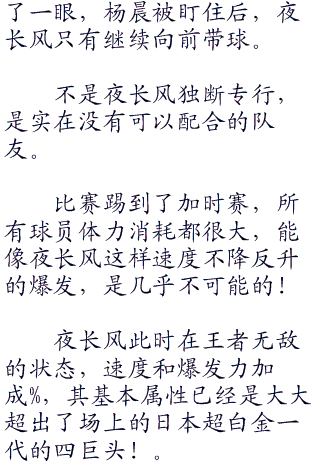 了一眼，杨晨被盯住后，夜
长风只有继续向前带球。
不是夜长风独断专行，
是实在没有可以配合的队
友。
比赛踢到了加时赛，所
有球员体力消耗都很大，能
像夜长风这样速度不降反升
的爆发，是几乎不可能的！
夜长风此时在王者无敌
的状态，速度和爆发力加
成%，其基本属性已经是大大
超出了场上的日本超白金一
代的四巨头！。